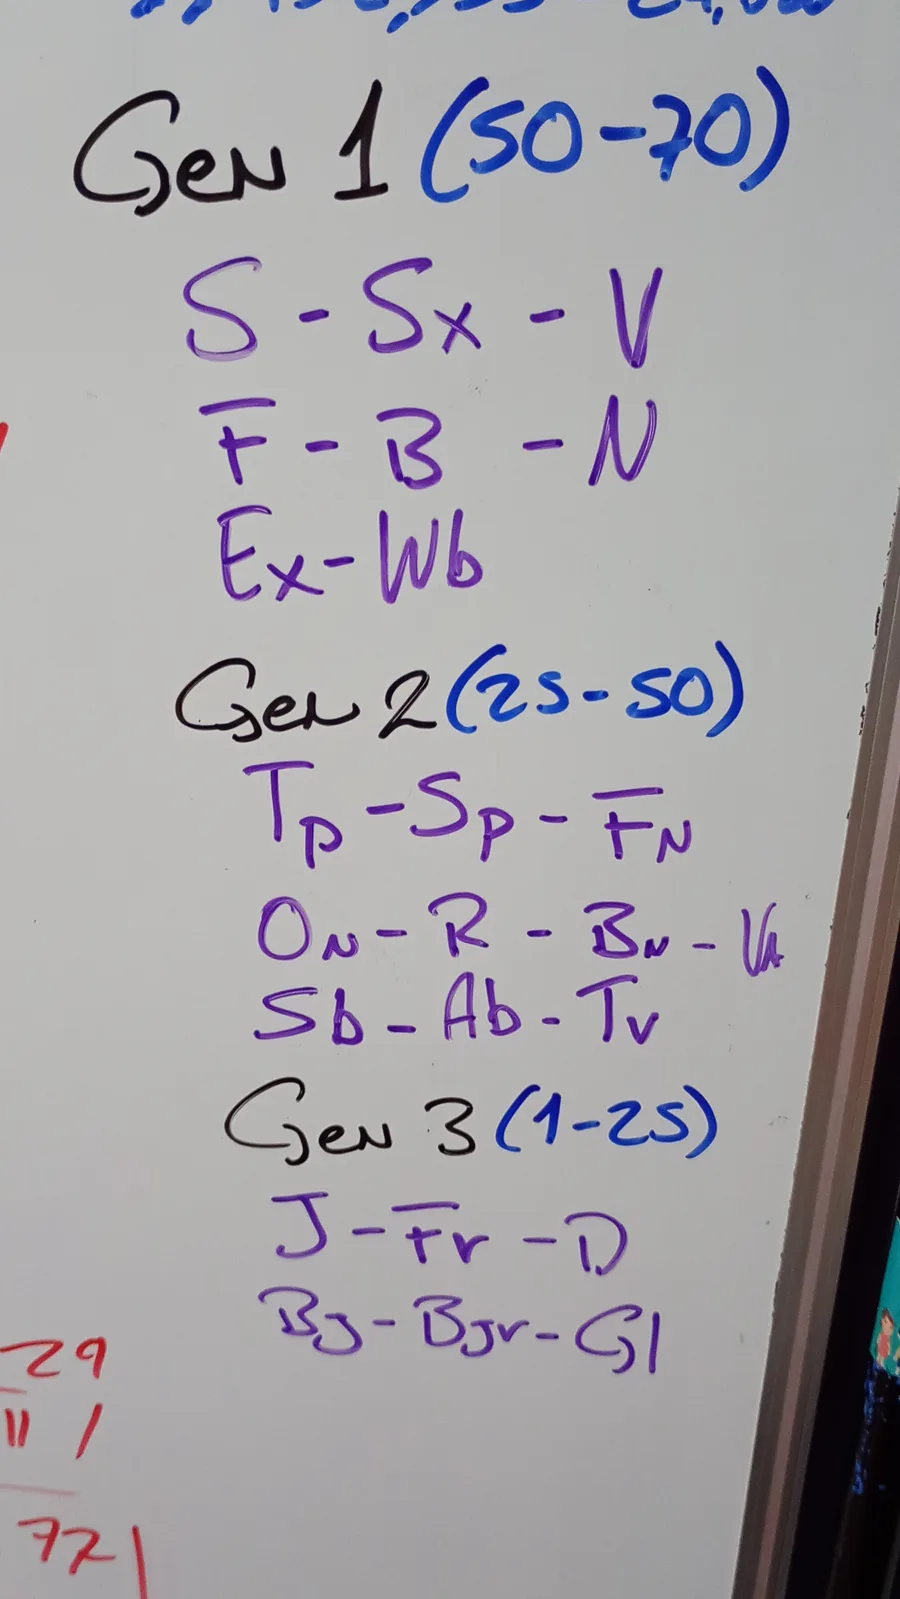 Gen 1 (50-70)
S - Sx - V
F - B - N
Ex - Wb
Gen 2 (25-50)
Tp - Sp - FN
ON - R - BN - VA
Sb - Ab - Tv
Gen 3 (1-25)
J - Fr - D
BJ - BJr - Gl
29
11 /
721